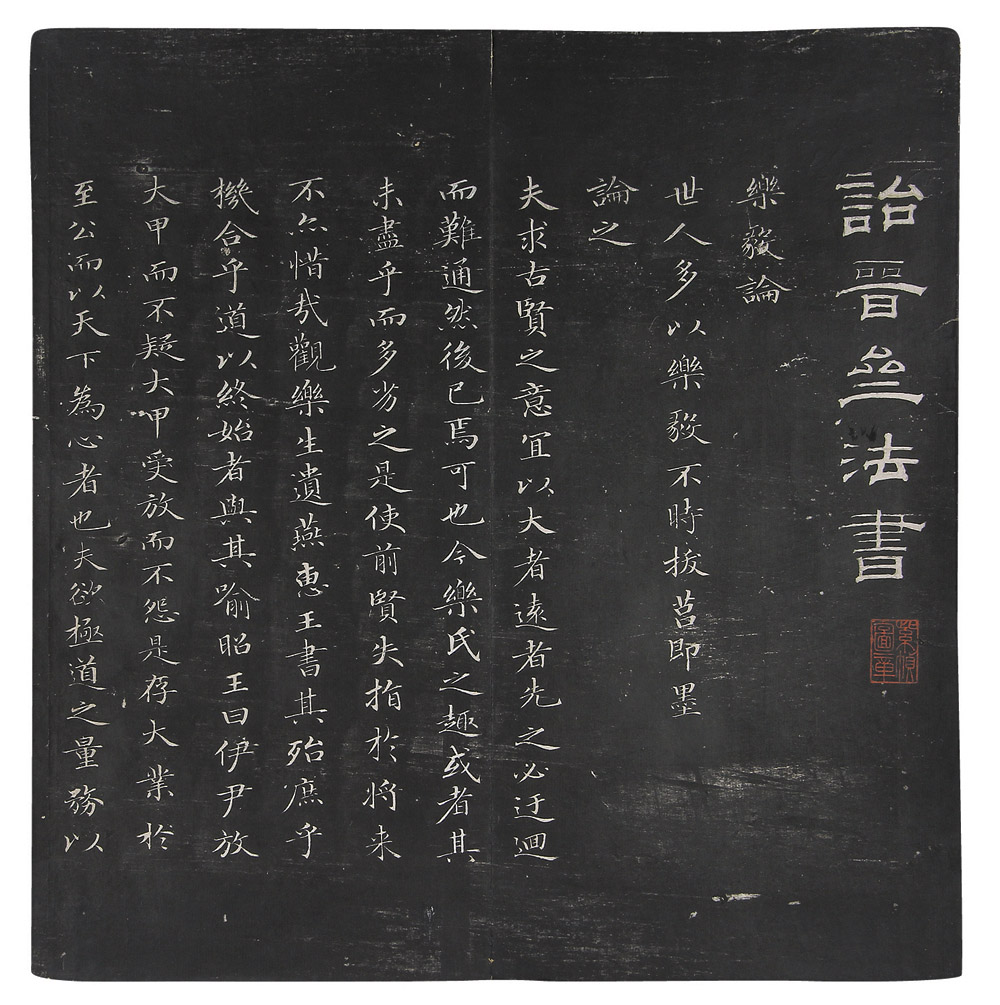 詒晉亝法書
樂毅論
世人多以樂毅不時拔莒即墨
論之
夫求古賢之意宜以大者遠者先之必迂迴
而難通然後已焉可也今樂氏之趣或者其
未盡乎而多劣之是使前賢失指於將来
不亦惜哉觀樂生遺燕惠王書其殆庶乎
機合乎道以終始者與其喻昭王曰伊尹放
大甲而不疑大甲受放而不怨是存大業於
至公而以天下為心者也夫欲極道之量務以
圖章